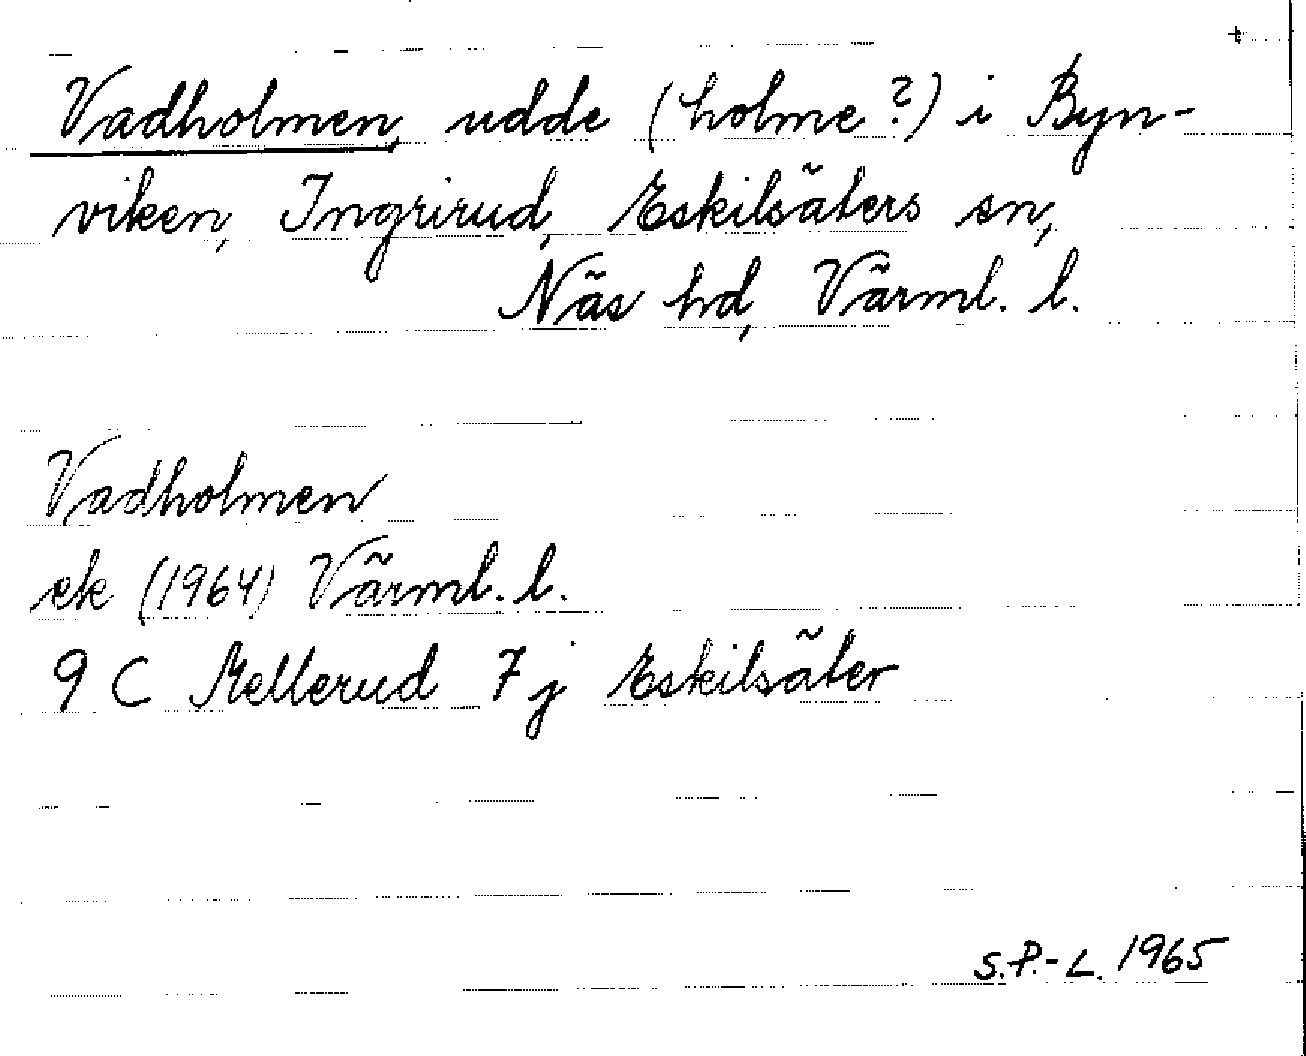 +
Vadholmen, udde (holme?) i Byn-
viken, Ingrirud, Eskilsäters sn,
Näs hd, Värml. l.
Vadholmen
ek (1964) Värml. l.
9 C Mellerud 7 j Eskilsäter
S.P.-L. 1965